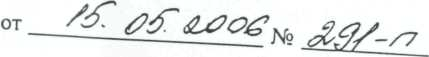 от 15. 05. 2006 № 291-п